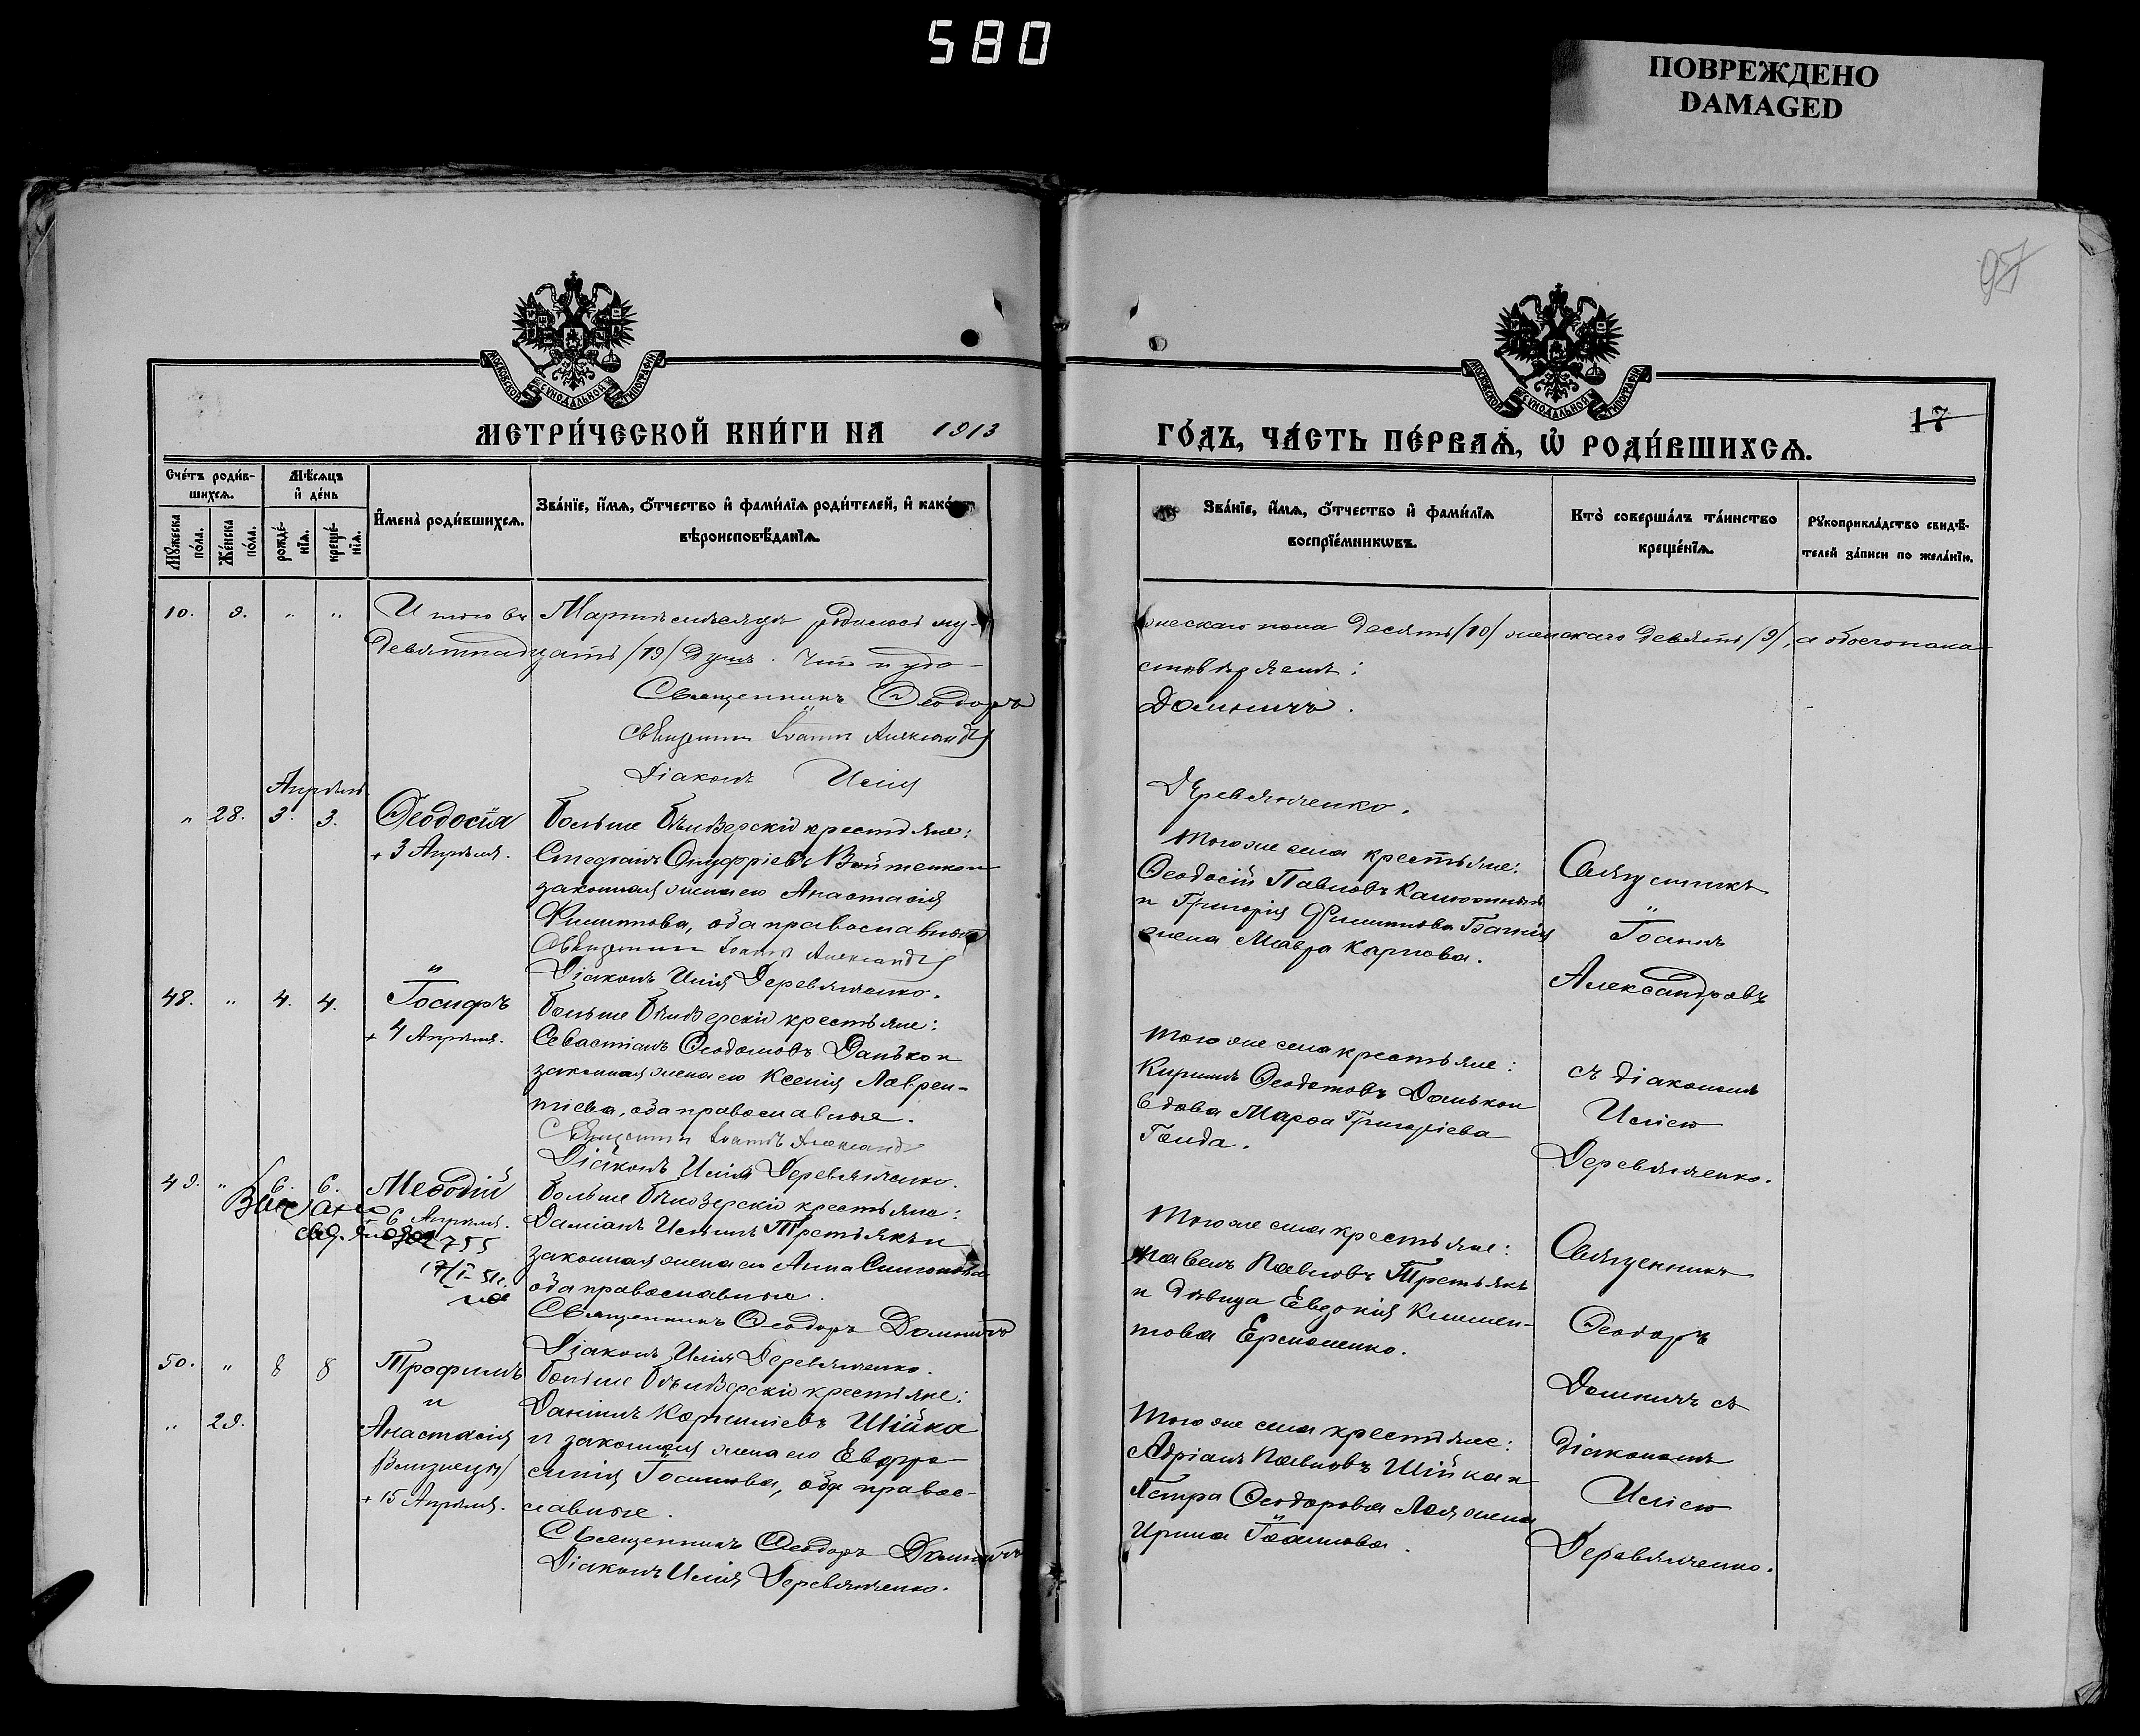 580
ПОВРЕЖДЕНО
DAMAGED
97
МОСКОВСКОЙ СѴНОДАЛЬНОЙ ТИПОГРАФІИ
МОСКОВСКОЙ СѴНОДАЛЬНОЙ ТИПОГРАФІИ
17
МЕТРИ́ЧЕСКОЙ КНИ́ГИ НА 1913
ГО́ДЪ, ЧА́СТЬ ПЕ́РВАѦ, Ѡ҆ РОДИ́ВШИХСѦ.
Сче́тъ роди́в-
шихсѧ.
Мѣ́сѧцъ
и҆ де́нь
Мꙋ́жеска
по́ла.
Же́нска
по́ла.
рожде́-
нїѧ.
креще́-
нїѧ.
И҆мена̀ роди́вшихсѧ.
Зва́нїе, и҆́мѧ, ѻ҆́тчество и҆ фами́лїѧ роди́телей, и҆ како́гѡ
вѣроисповѣ́данїѧ.
Зва́нїе, и҆́мѧ, ѻ҆́тчество и҆ фами́лїѧ
воспрїе́мникѡвъ.
Кто̀ соверша́лъ та́инство
креще́нїѧ.
Рꙋкоприкла́дство свидѣ́-
телей за́писи по жела́нїю.
10. 9. " " Итого въ Мартѣ мѣсяцѣ родилось му-
девятнадцать /19/ душъ. Что и удо-
Священникъ Ѳеодоръ
Священникъ Іоаннъ Александр
Діаконъ Илія
жескаго пола десять /10/ женскаго девять /9/, а обоего пола
стовѣряемъ:
Домничъ.
Деревянченко.
Апрѣль.
" 28. 3. 3. Ѳеодосія
+ 3 Апрѣля.
Больше Бѣлозерскіе крестьяне:
Стефанъ Онуфріевъ Войтенко и
законная жена его Анастасія
Филиппова, оба православные
Священникъ Іоаннъ Александр
Діаконъ Илія Деревянченко.
Того же села крестьяне:
Ѳеодосій Павловъ Калюжный
и Григорія Филиппова
жена Мавра Карпова.
Священникъ
Іоаннъ
Александровъ
48. " 4. 4. Іосифъ
+ 4 Апрѣля.
Больше Бѣлозерскіе крестьяне:
Севастіанъ Ѳеодотовъ Данько и
законная жена его Ксенія Лаврен-
тіева, оба православные.
Священникъ Іоаннъ Александр
Діаконъ Илія Деревянченко.
Того же села крестьяне:
Кириллъ Ѳеодотовъ Данько и
вдова Марѳа Григоріева
Гонда.
съ діакономъ
Иліею
Деревянченко.
49. " 6. 6. Меѳодій
+ 6 Апрѣля.
2755
17/I-51г.
Больше Бѣлозерскіе крестьяне:
Даміанъ Исаинъ Третьякъ и
законная жена его Анна Симонова
оба православные.
Священникъ Ѳеодоръ Домничъ
Діаконъ Илія Деревянченко.
Того же села крестьяне:
Павелъ Павловъ Третьякъ
и дѣвица Евдокія Климен-
това Ермоленко.
Священникъ
Ѳеодоръ
Домничъ съ
50. " 8 8 Трофимъ
и
" 29. Анастасія
/близнецы/
+ 15 Апрѣля.
Больше Бѣлозерскіе крестьяне:
Даніилъ Корниліевъ Шійка
и законная жена его Евфро-
синія Іосифова, оба право-
славные.
Священникъ Ѳеодоръ Домничъ
Діаконъ Илія Деревянченко.
Того же села крестьяне:
Адріанъ Павловъ Шійка и
Петра Ѳеодорова Лея жена
Ирина Іоаннова.
діакономъ
Иліею
Деревянченко.